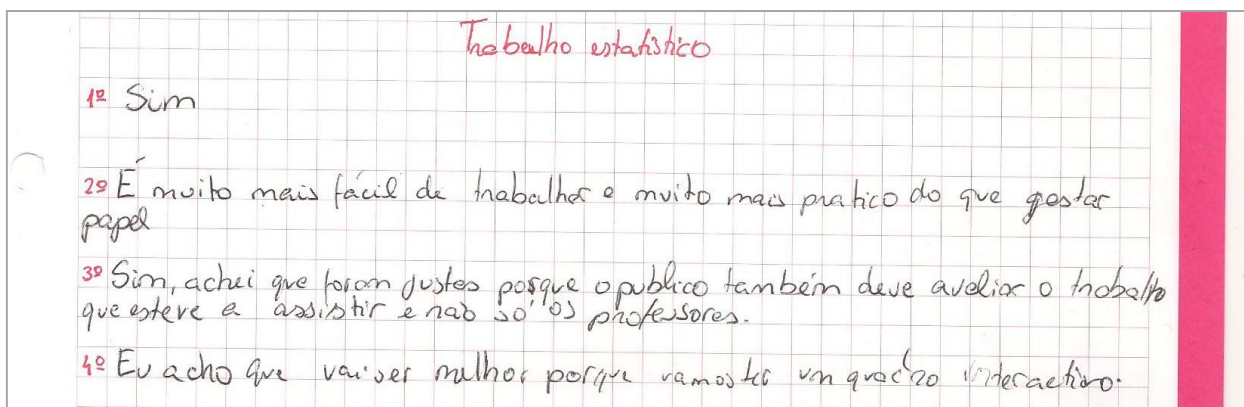 Trabalho estatístico
1º Sim
2º É muito mais fácil de trabalhar e muito mais pratico do que gastar
papel
3º Sim, achei que foram justos porque o publico também deve avaliar o trabalho
que esteve a assistir e não só os professores.
4º Eu acho que vai ser melhor porque vamos ter um interactivo.